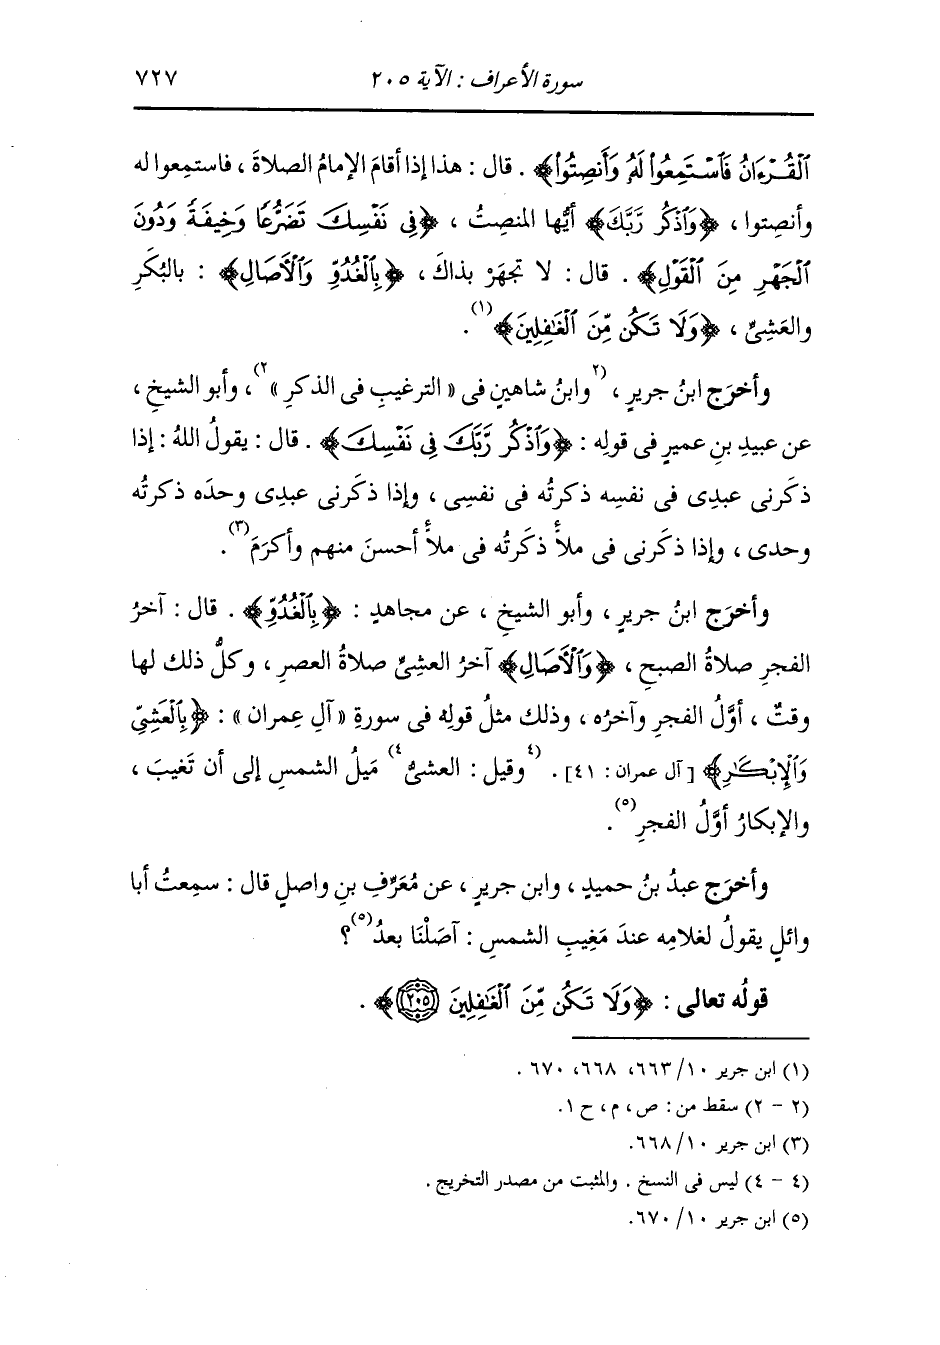 سورة الأعراف : الآية ٢٠٥ ٧٢٧
ٱلْقُرْءَانُ فَٱسْتَمِعُوا۟ لَهُۥ وَأَنصِتُوا۟﴾ . قال : هذا إذا أقامَ الإمامُ الصلاةَ ، فاستمِعوا له
وأنصِتوا ، ﴿وَٱذْكُر رَّبَّكَ﴾ أيُّها المنصِتُ ، ﴿فِى نَفْسِكَ تَضَرُّعًا وَخِيفَةً وَدُونَ
ٱلْجَهْرِ مِنَ ٱلْقَوْلِ﴾ . قال : لا تجهَرْ بذاكَ ، ﴿بِٱلْغُدُوِّ وَٱلْءَاصَالِ﴾ : بالبُكَرِ
والعَشِىِّ ، ﴿وَلَا تَكُن مِّنَ ٱلْغَٰفِلِينَ﴾(١) .
وأخرَج ابنُ جريرٍ ، (٢وابنُ شاهينٍ فى « الترغيبِ فى الذكرِ »٢) ، وأبو الشيخِ ،
عن عبيدِ بنِ عميرٍ فى قولِه : ﴿وَٱذْكُر رَّبَّكَ فِى نَفْسِكَ﴾ . قال : يقولُ اللهُ : إذا
ذكَرنى عبدِى فى نفسِه ذكرتُه فى نفسِى ، وإذا ذكَرنى عبدِى وحدَه ذكرتُه
وحدى ، وإذا ذكَرنى فى ملأٍ ذكَرتُه فى ملأٍ أحسنَ منهم وأكرَمَ(٣) .
وأخرَج ابنُ جريرٍ ، وأبو الشيخِ ، عن مجاهدٍ : ﴿بِٱلْغُدُوِّ﴾ . قال : آخرُ
الفجرِ صلاةُ الصبحِ ، ﴿وَٱلْءَاصَالِ﴾ آخرُ العشىِّ صلاةُ العصرِ ، وكلُّ ذلك لها
وقتٌ ، أوَّلُ الفجرِ وآخرُه ، وذلك مثلُ قولِه فى سورةِ «آلِ عِمران» : ﴿بِٱلْعَشِىِّ
وَٱلْإِبْكَٰرِ﴾ [ آل عمران : ٤١] . (٤وقيل : العشىُّ٤) مَيلُ الشمسِ إلى أن تَغيبَ ،
والإبكارُ أوَّلُ الفجرِ(٥) .
وأخرَج عبدُ بنُ حميدٍ ، وابن جريرٍ ، عن مُعَرِّفِ بنِ واصلٍ قال : سمِعتُ أبا
وائلٍ يقولُ لغلامِه عندَ مَغِيبِ الشمسِ : آصَلْنَا بعدُ(٥) ؟
قولُه تعالى : ﴿وَلَا تَكُن مِّنَ ٱلْغَٰفِلِينَ ٢٠٥﴾ .
(١) ابن جرير ١٠/ ٦٦٣، ٦٦٨، ٦٧٠ .
(٢ - ٢) سقط من : ص ، م ، ح ١.
(٣) ابن جرير ١٠/ ٦٦٨.
(٤ - ٤) ليس فى النسخ . والمثبت من مصدر التخريج .
(٥) ابن جرير ١٠/ ٦٧٠.